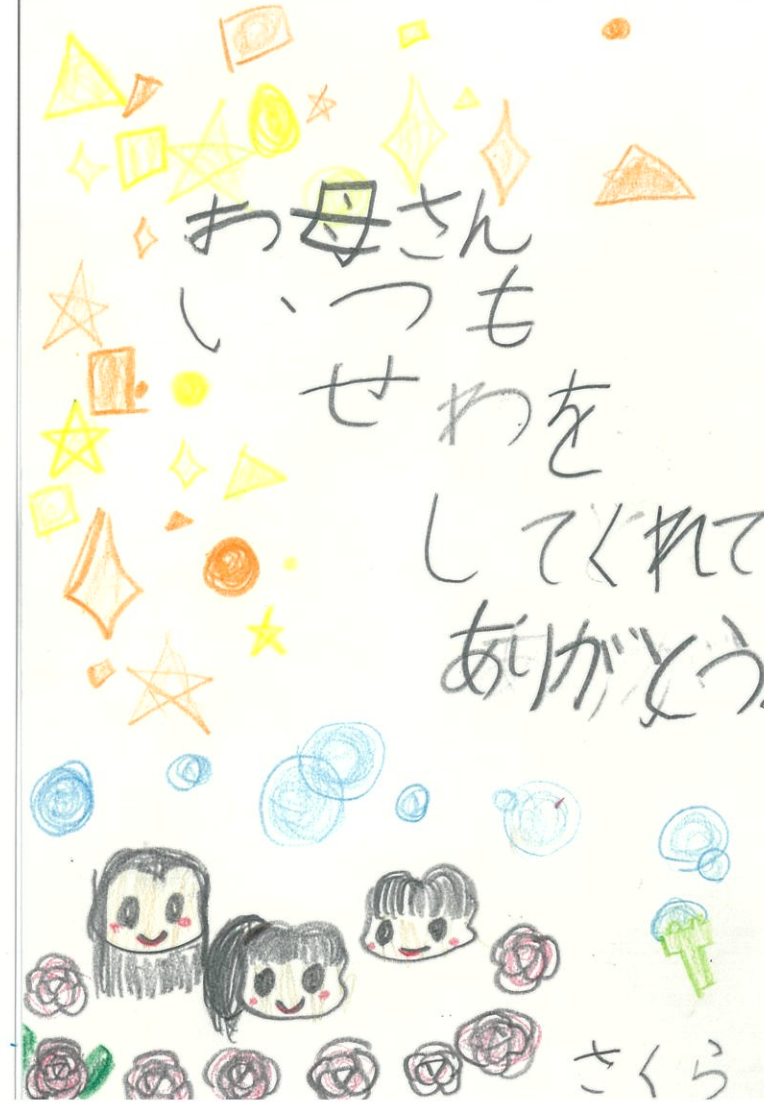 お母さん
いつも
せわを
してくれて
ありがとう
さくら